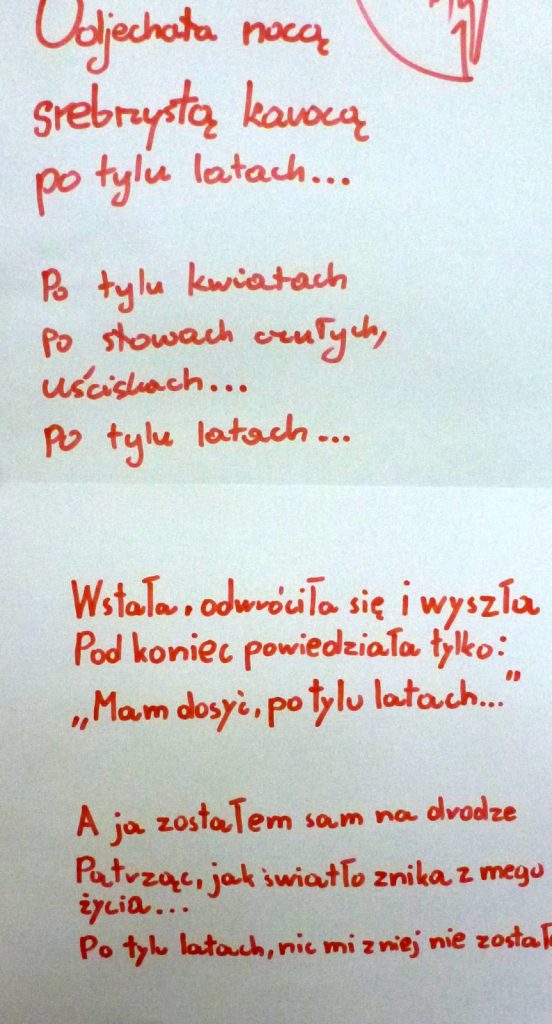 Odjechała nocą
srebrzystą karocą
po tylu latach...
Po tylu kwiatach
Po słowach czułych,
uściskach...
Po tylu latach...
Wstała, odwróciła się i wyszła
Pod koniec powiedziała tylko:
„Mam dosyć, po tylu latach..."
A ja zostałem sam na drodze
Patrząc, jak światło znika z mego
życia...
Po tylu latach, nic mi z niej nie